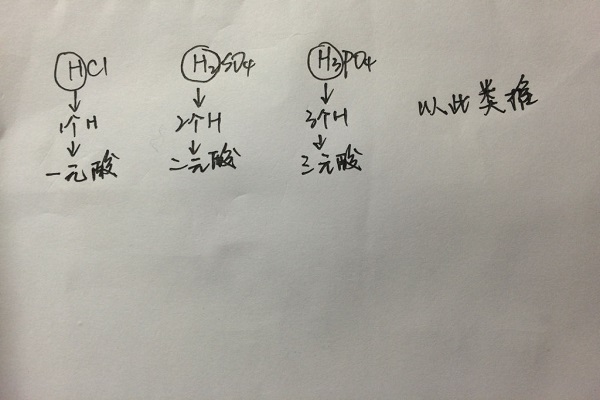 HCl H2SO4 H3PO4
以此类推
1个H 2个H 3个H
一元酸 二元酸 三元酸